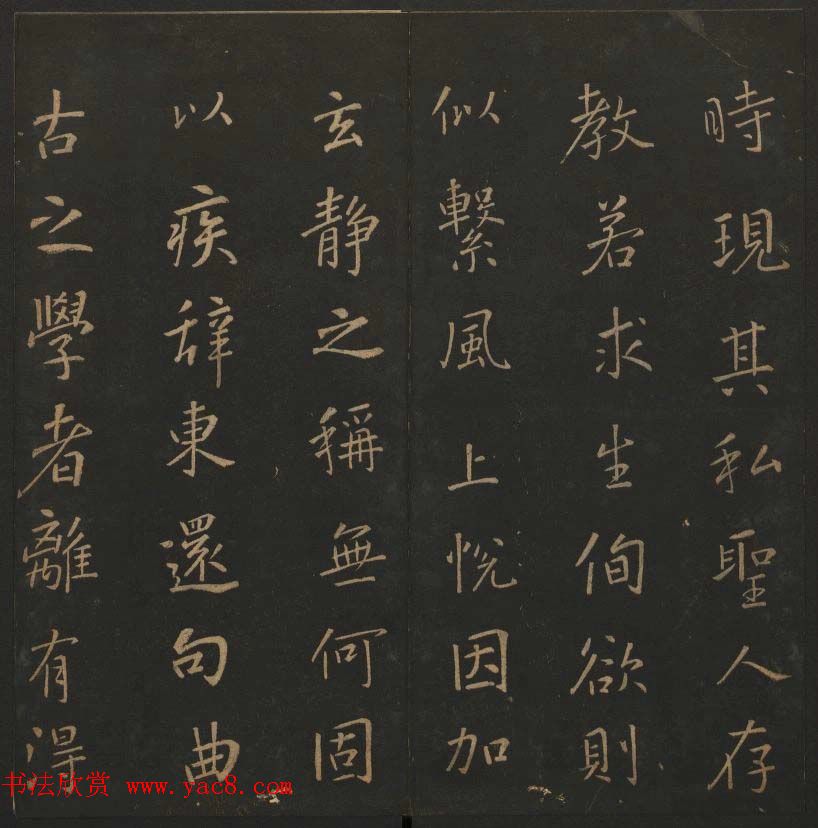 時現其私聖人存
教若求生徇欲則
似繫風上悦因加
玄靜之稱無何固
以疾辞東還句曲
古之學者離有得
书法欣赏 www.yac8.com